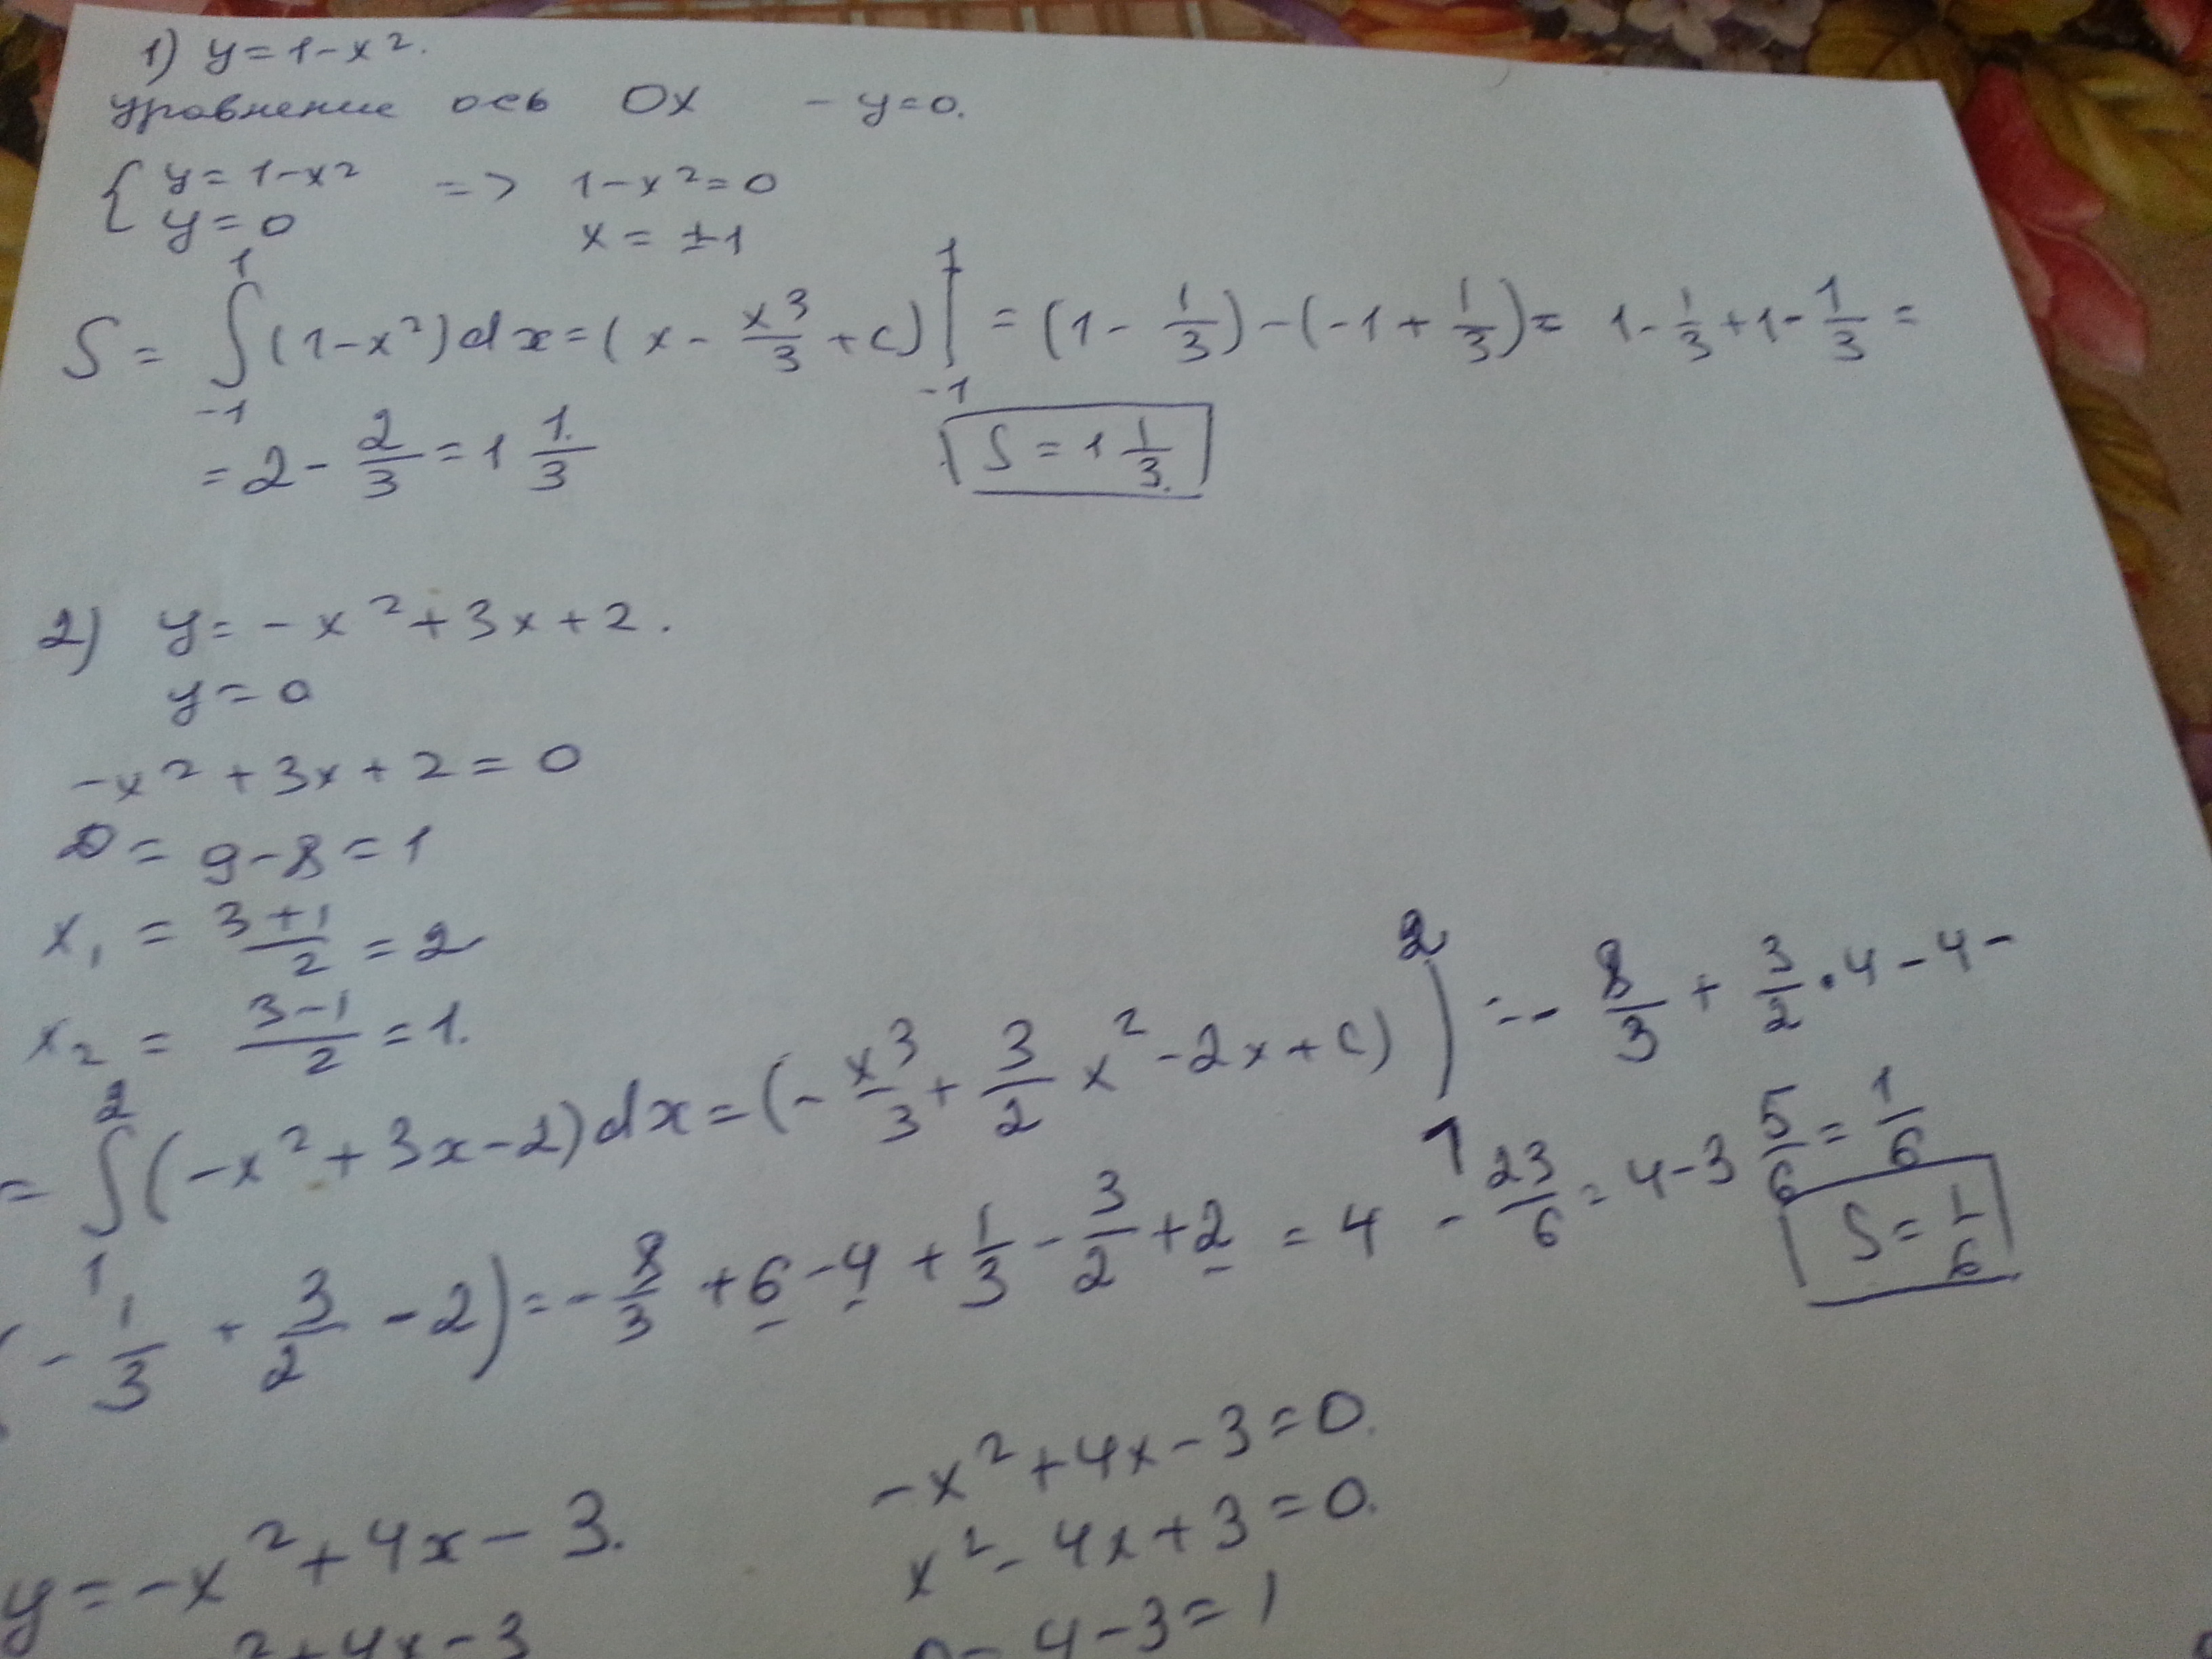 1) y = 1 - x².
уравнение ось Ox - y = 0.
{ y = 1 - x² => 1 - x² = 0
y = 0 x = ±1
S = ∫₋₁¹ (1 - x²) dx = (x - x³/3 + c) |₋₁¹ = (1 - 1/3) - (-1 + 1/3) = 1 - 1/3 + 1 - 1/3 =
= 2 - 2/3 = 1 1/3 S = 1 1/3.
2) y = -x² + 3x + 2.
y = 0
-x² + 3x + 2 = 0
D = 9 - 8 = 1
x₁ = (3+1)/2 = 2
x₂ = (3-1)/2 = 1.
= ∫₁² (-x² + 3x - 2) dx = (-x³/3 + 3/2 x² - 2x + c) |₁² = - 8/3 + 3/2 · 4 - 4 -
(- 1/3 + 3/2 - 2) = - 8/3 + 6 - 4 + 1/3 - 3/2 + 2 = 4 - 23/6 = 4 - 3 5/6 = 1/6
S = 1/6
y = -x² + 4x - 3. -x² + 4x - 3 = 0.
x² - 4x + 3 = 0.
² + 4x - 3 = 4 - 3 = 1